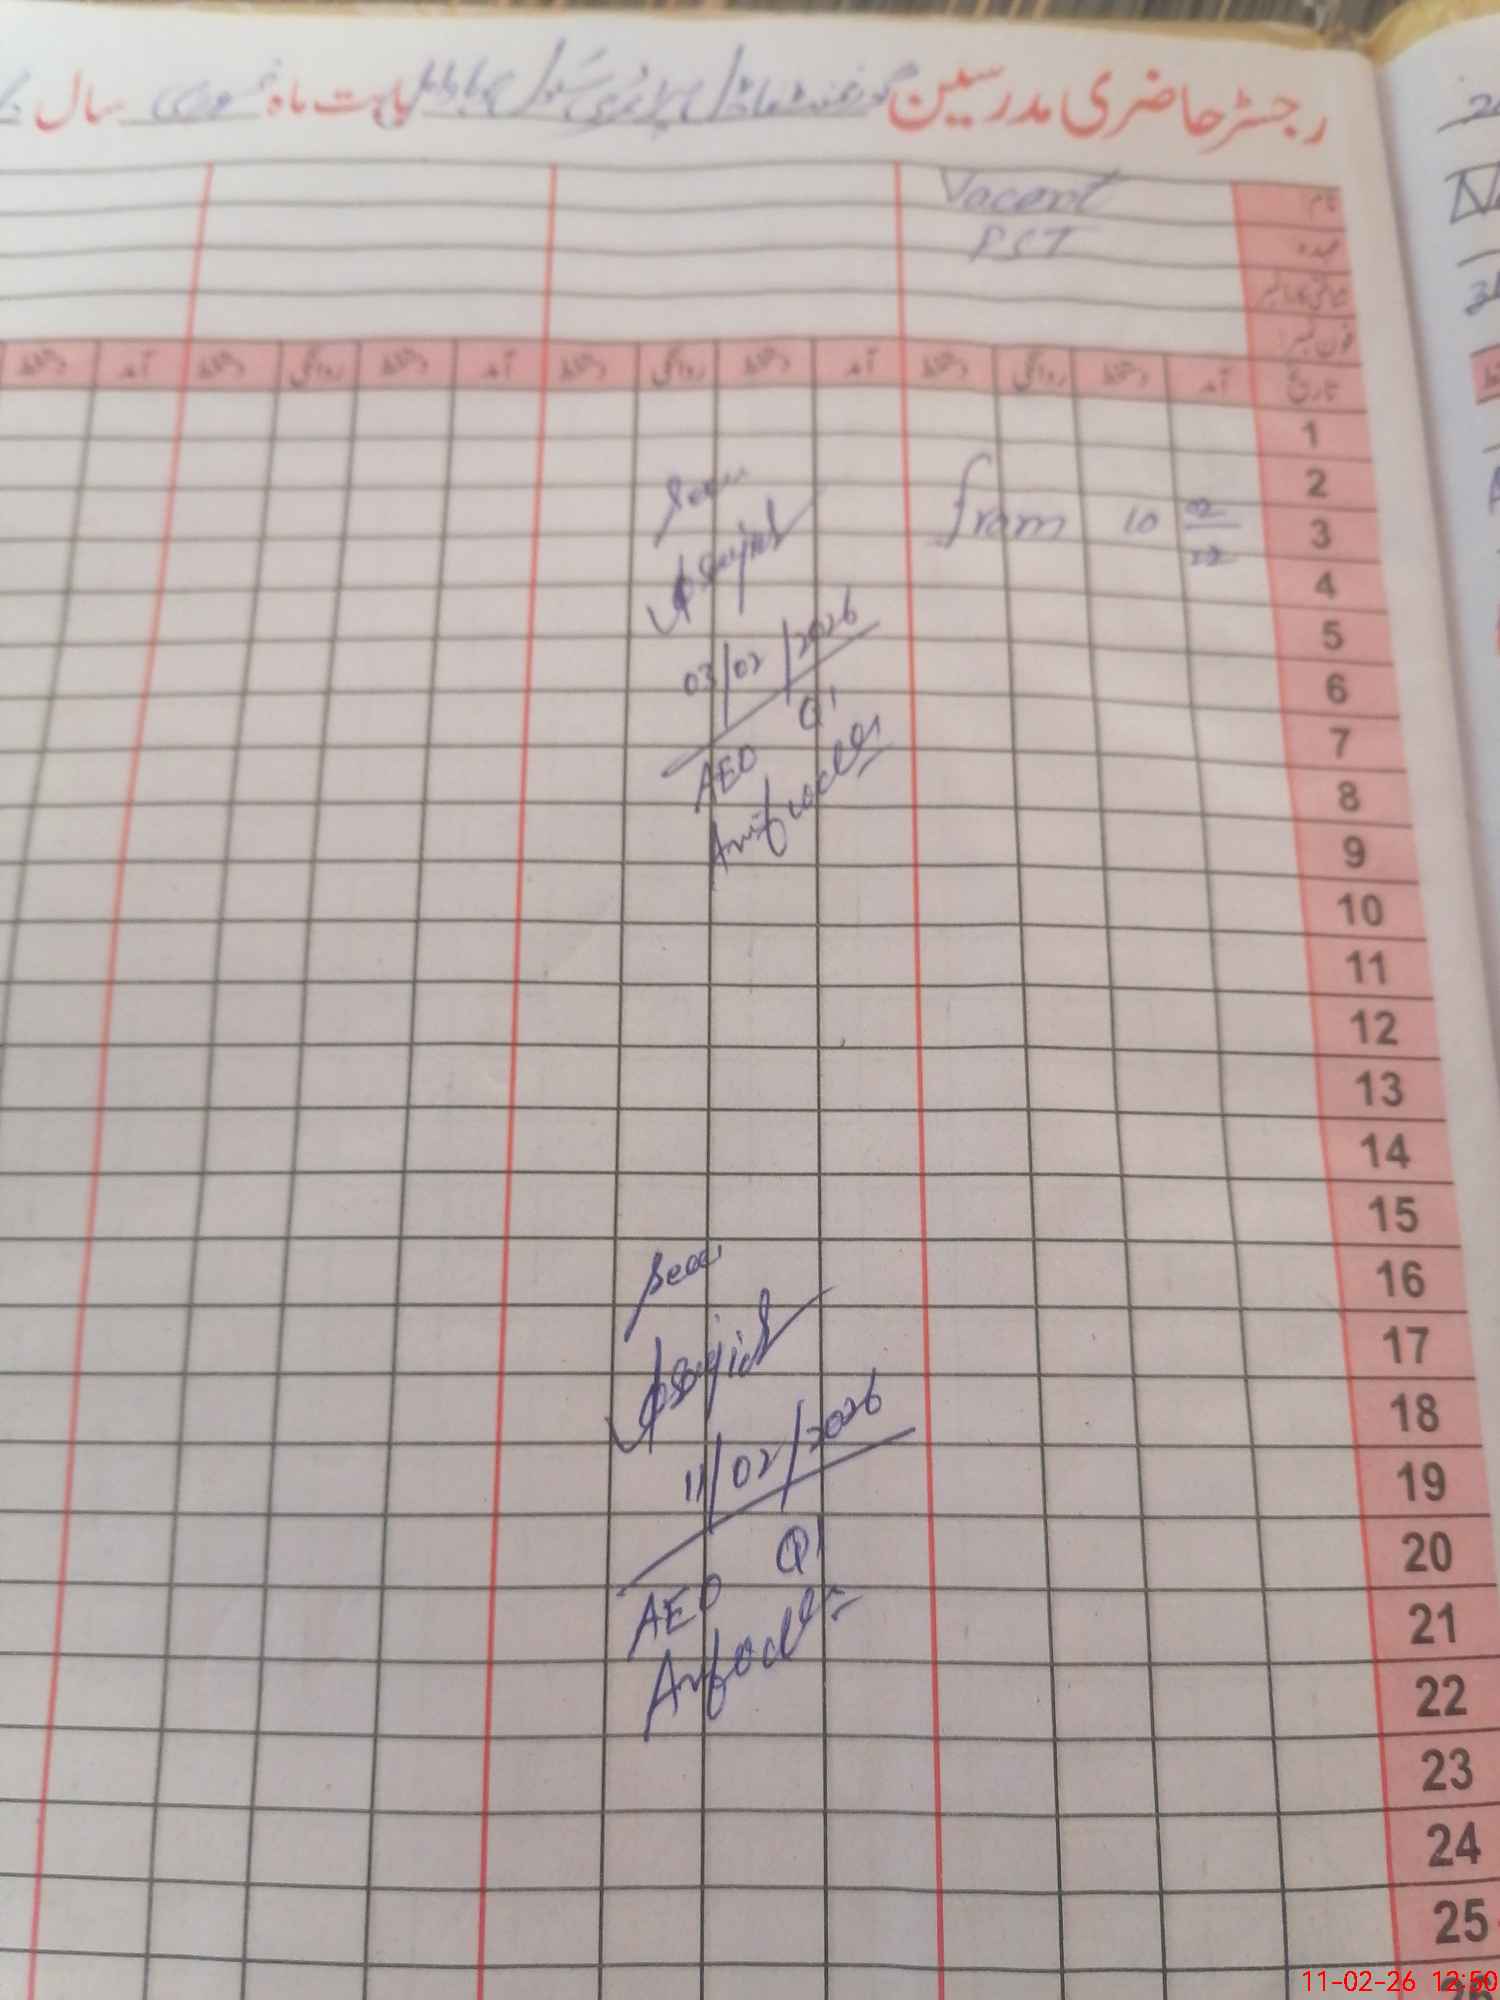 رجسٹر حاضری مدرسین گورنمنٹ ماڈل پرائمری سکول بابت ماہ فروری سال
نام Vacent
عہدہ PST
فون نمبر
تاریخ آمد دستخط روانگی دستخط آمد دستخط روانگی دستخط آمد دستخط روانگی دستخط آمد دستخط
1
2
3
4
5
6
7
8
9
10
11
12
13
14
15
16
17
18
19
20
21
22
23
24
25
26
from 10 02
12
Seen
Sajid
03/02/2026
AEO
Seen
Sajid
11/02/2026
AEO
11-02-26 12:50